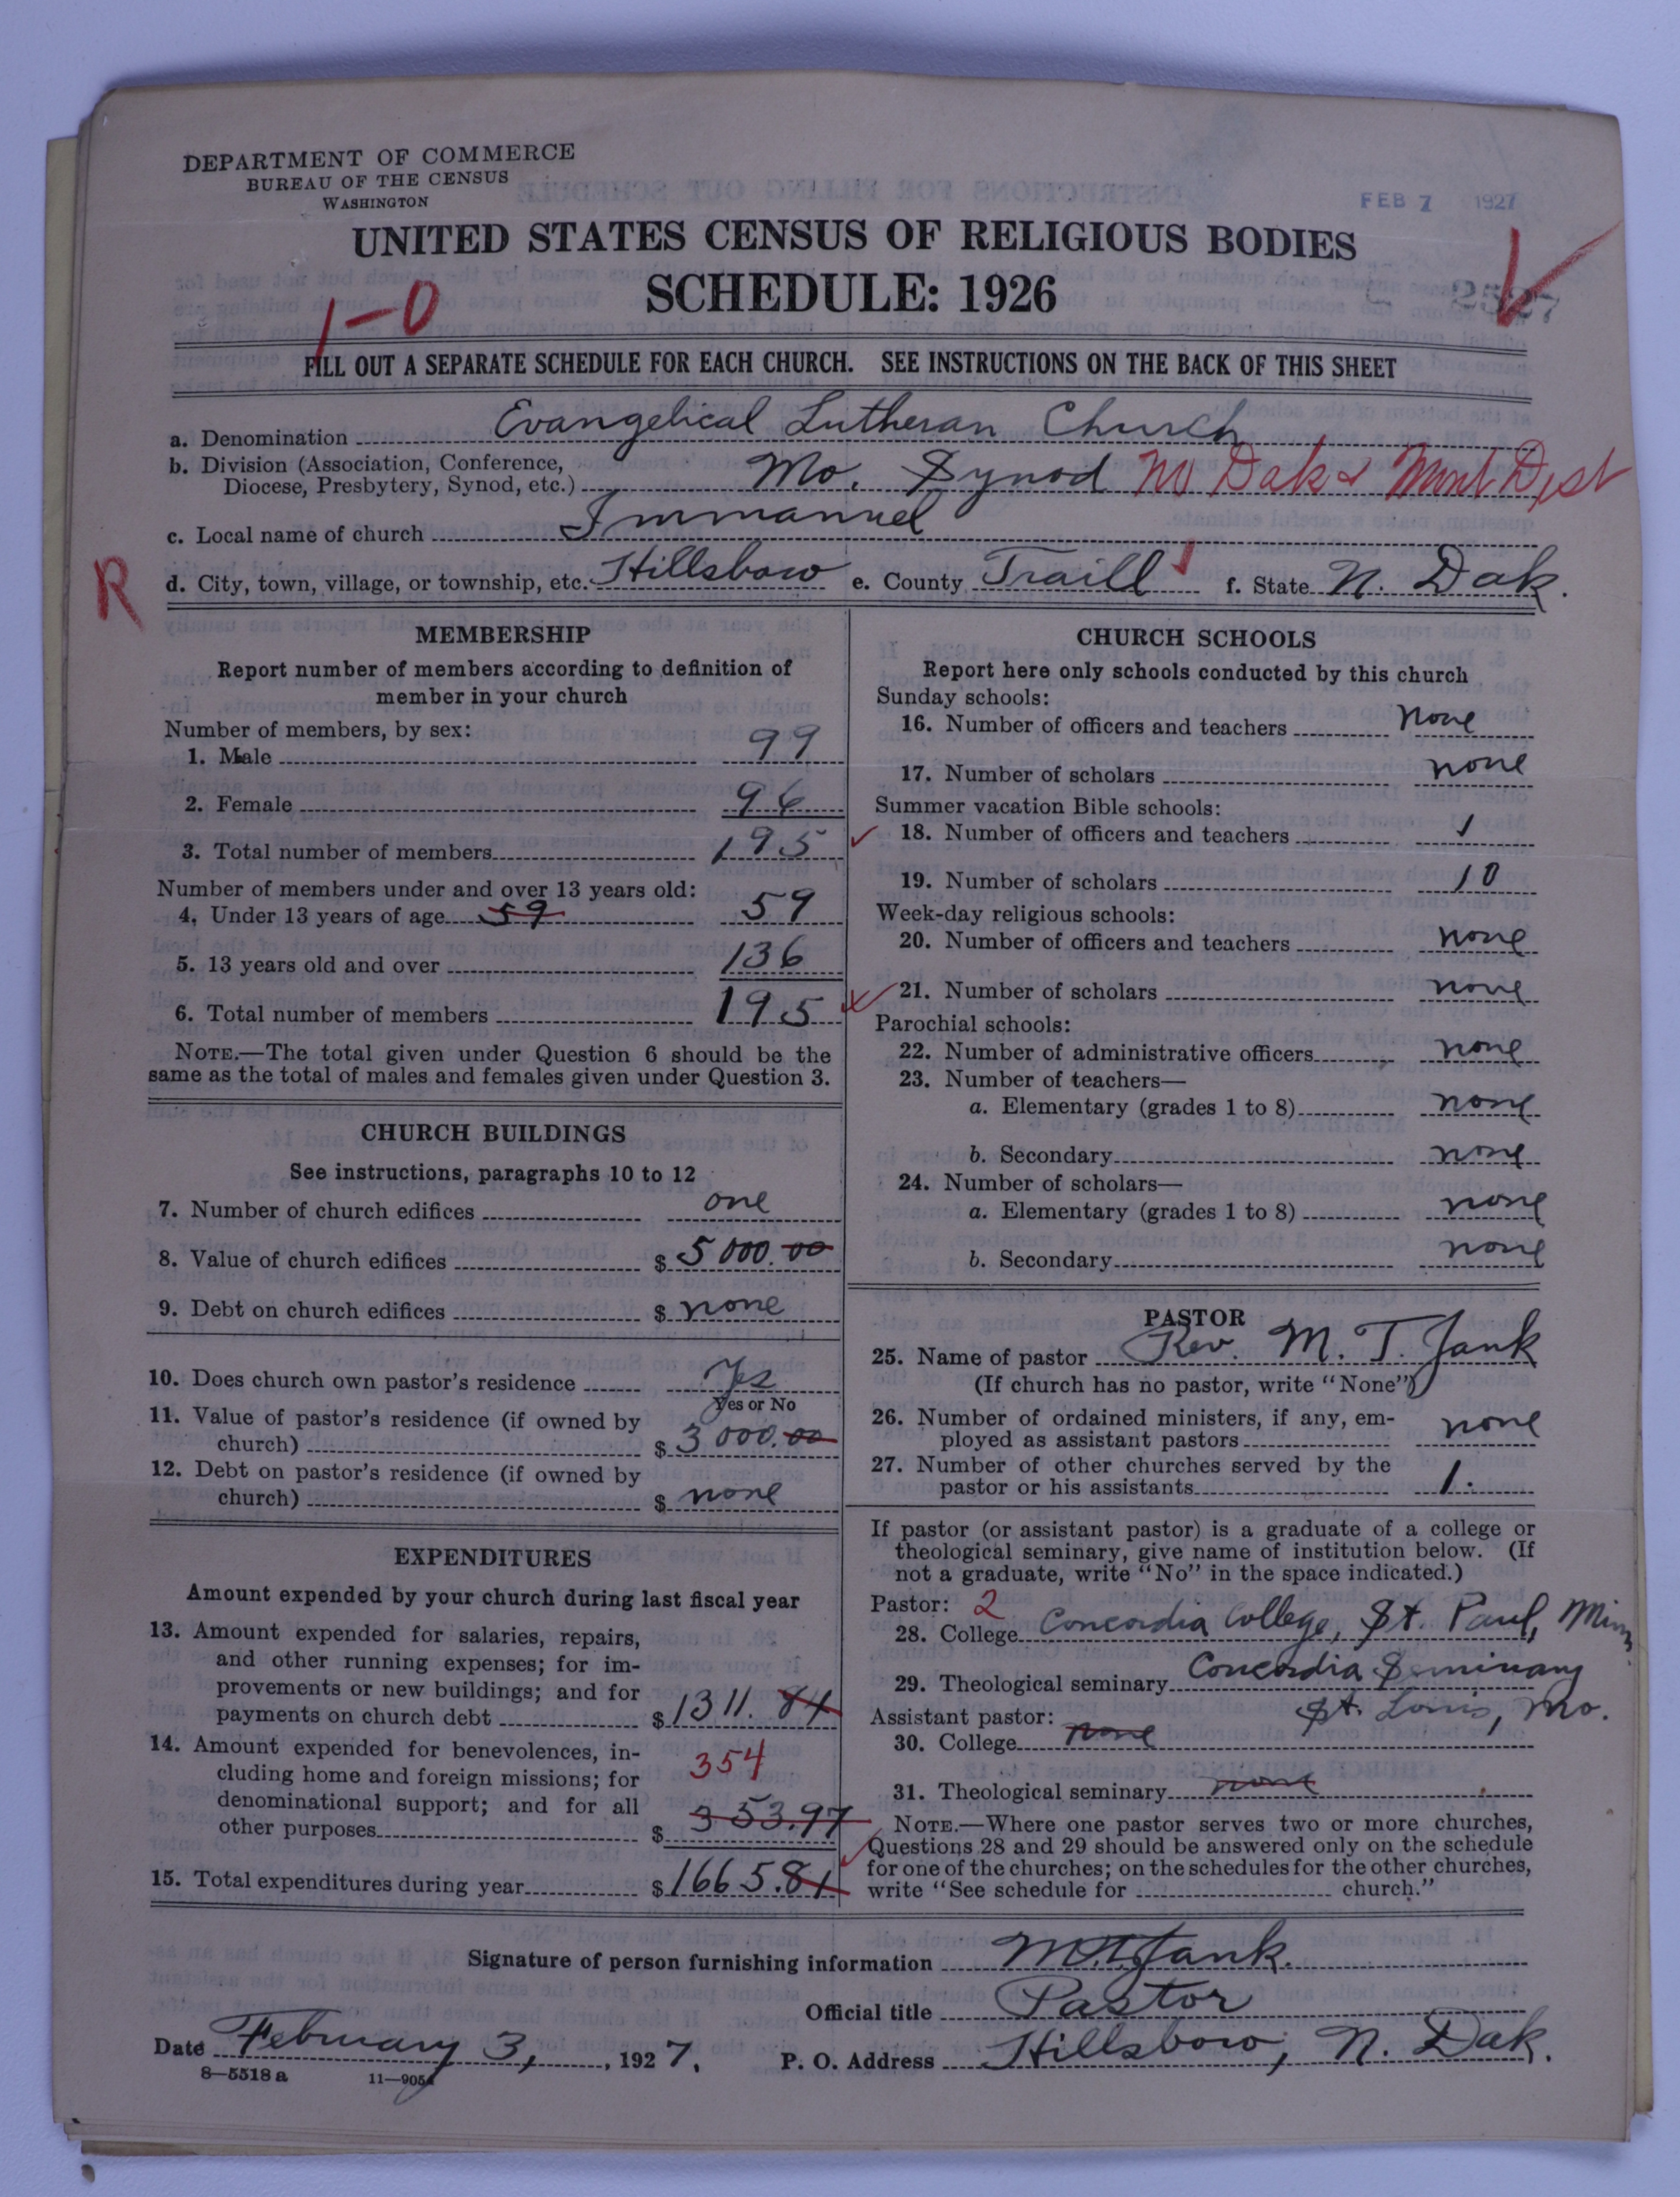 DEPARTMENT OF COMMERCE
BUREAU OF THE CENSUS
WASHINGTON
FEB 7 1927
UNITED STATES CENSUS OF RELIGIOUS BODIES
SCHEDULE: 1926
1-0
2527
FILL OUT A SEPARATE SCHEDULE FOR EACH CHURCH. SEE INSTRUCTIONS ON THE BACK OF THIS SHEET
a. Denomination Evangelical Lutheran Church
b. Division (Association, Conference, Diocese, Presbytery, Synod, etc.) Mo. Synod No Dak & Mont Dist
c. Local name of church Immanuel
R
d. City, town, village, or township, etc. Hillsboro e. County Traill f. State N. Dak.
MEMBERSHIP
Report number of members according to definition of
member in your church
Number of members, by sex:
1. Male 99
2. Female 96
3. Total number of members 195
Number of members under and over 13 years old:
4. Under 13 years of age 59 59
5. 13 years old and over 136
6. Total number of members 195
NOTE.—The total given under Question 6 should be the
same as the total of males and females given under Question 3.
CHURCH BUILDINGS
See instructions, paragraphs 10 to 12
7. Number of church edifices one
8. Value of church edifices $5000.00
9. Debt on church edifices $ none
10. Does church own pastor's residence Yes
Yes or No
11. Value of pastor's residence (if owned by
church) $3000.00
12. Debt on pastor's residence (if owned by
church) $ none
EXPENDITURES
Amount expended by your church during last fiscal year
13. Amount expended for salaries, repairs,
and other running expenses; for im-
provements or new buildings; and for
payments on church debt $1311.84
14. Amount expended for benevolences, in-
cluding home and foreign missions; for 354
denominational support; and for all
other purposes $353.97
15. Total expenditures during year $1665.81
CHURCH SCHOOLS
Report here only schools conducted by this church
Sunday schools:
16. Number of officers and teachers none
17. Number of scholars none
Summer vacation Bible schools:
18. Number of officers and teachers 1
19. Number of scholars 10
Week-day religious schools:
20. Number of officers and teachers none
21. Number of scholars none
Parochial schools:
22. Number of administrative officers none
23. Number of teachers—
a. Elementary (grades 1 to 8) none
b. Secondary none
24. Number of scholars—
a. Elementary (grades 1 to 8) none
b. Secondary none
PASTOR
25. Name of pastor Rev. M. T. Jank
(If church has no pastor, write "None")
26. Number of ordained ministers, if any, em-
ployed as assistant pastors none
27. Number of other churches served by the
pastor or his assistants 1.
If pastor (or assistant pastor) is a graduate of a college or
theological seminary, give name of institution below. (If
not a graduate, write "No" in the space indicated.)
Pastor: 2
28. College Concordia College, St. Paul, Minn.
29. Theological seminary Concordia Seminary
St. Louis, Mo.
Assistant pastor:
30. College none
31. Theological seminary none
NOTE.—Where one pastor serves two or more churches,
Questions 28 and 29 should be answered only on the schedule
for one of the churches; on the schedules for the other churches,
write "See schedule for church."
Signature of person furnishing information M. T. Jank.
Official title Pastor
Date February 3, 1927. P. O. Address Hillsboro, N. Dak.
8—5518 a 11—9054